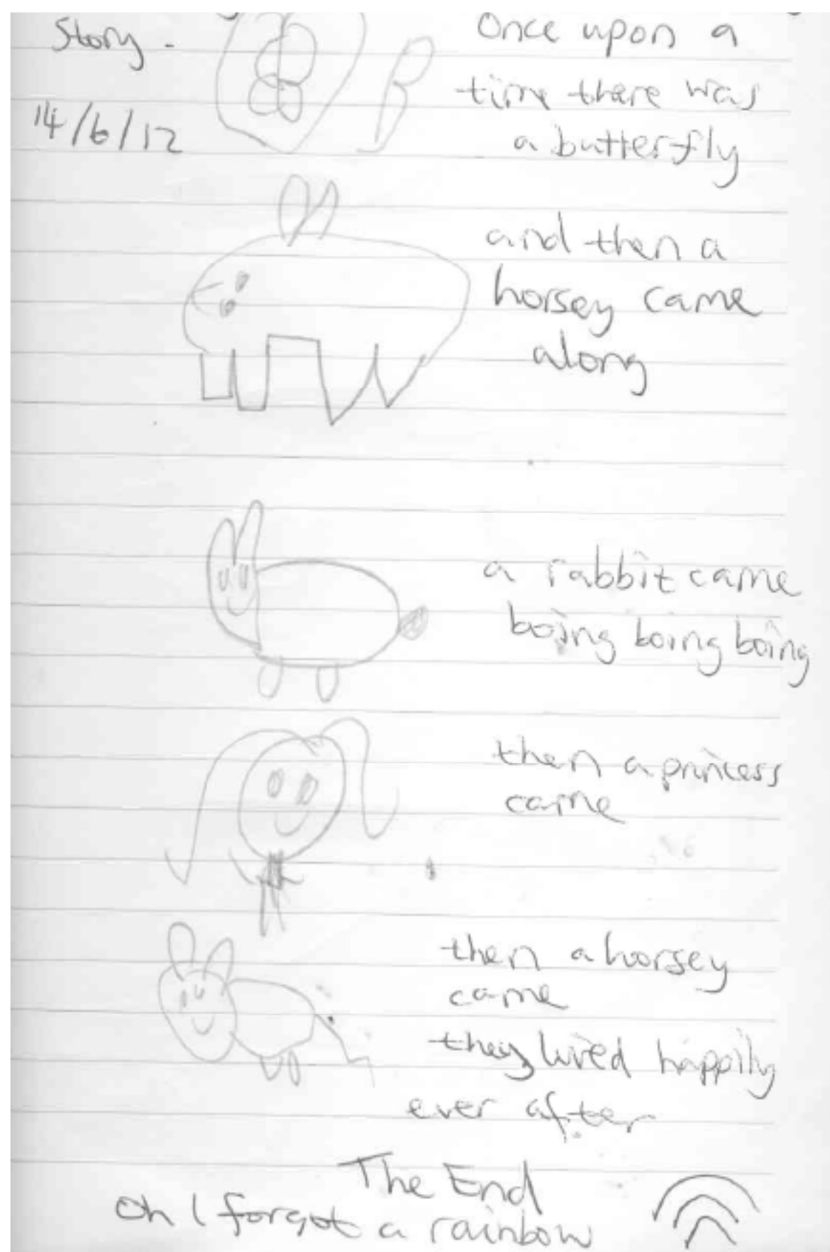 Story -
14/6/12
Once upon a
time there was
a butterfly
B
and then a
horsey came
along
a rabbit came
boing boing boing
then a princess
came
then a horsey
came
they lived happily
ever after
The End
Oh I forgot a rainbow